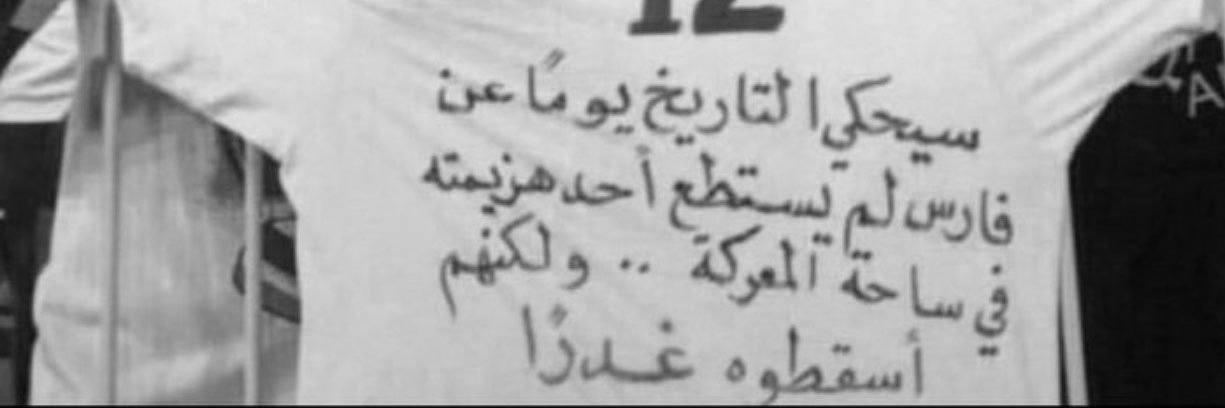 12
سيحكي التاريخ يومًا عن
فارس لم يستطع أحد هزيمته
في ساحة المعركة .. ولكنهم
أسقطوه غدرًا